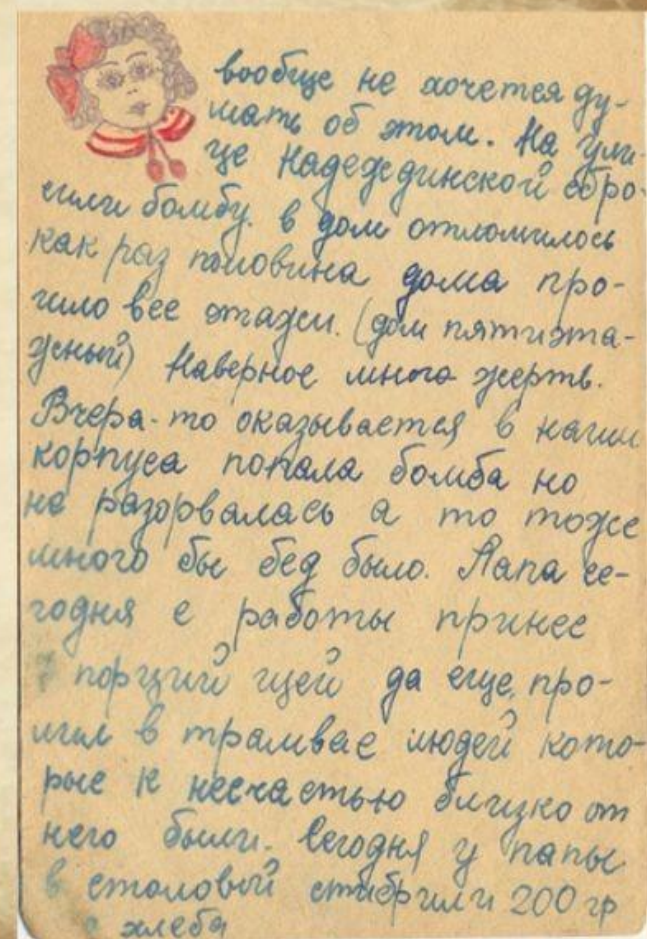 вообще не хочется ду-
мать об этом. На ули-
це Надеждинской сбро-
сили бомбу. в дом отломилось
как раз половина дома про-
било все этажи. (дом пятиэта-
жный) Наверное много жертв.
Вчера-то оказывается в наши
корпуса попала бомба но
не разорвалась а то тоже
много бы бед было. Папа се-
годня с работы принес
порций щей да еще про-
лил в трамвае людей кото-
рые к несчастью близко от
него были. Сегодня у папы
в столовой стибрили 200 гр
хлеба